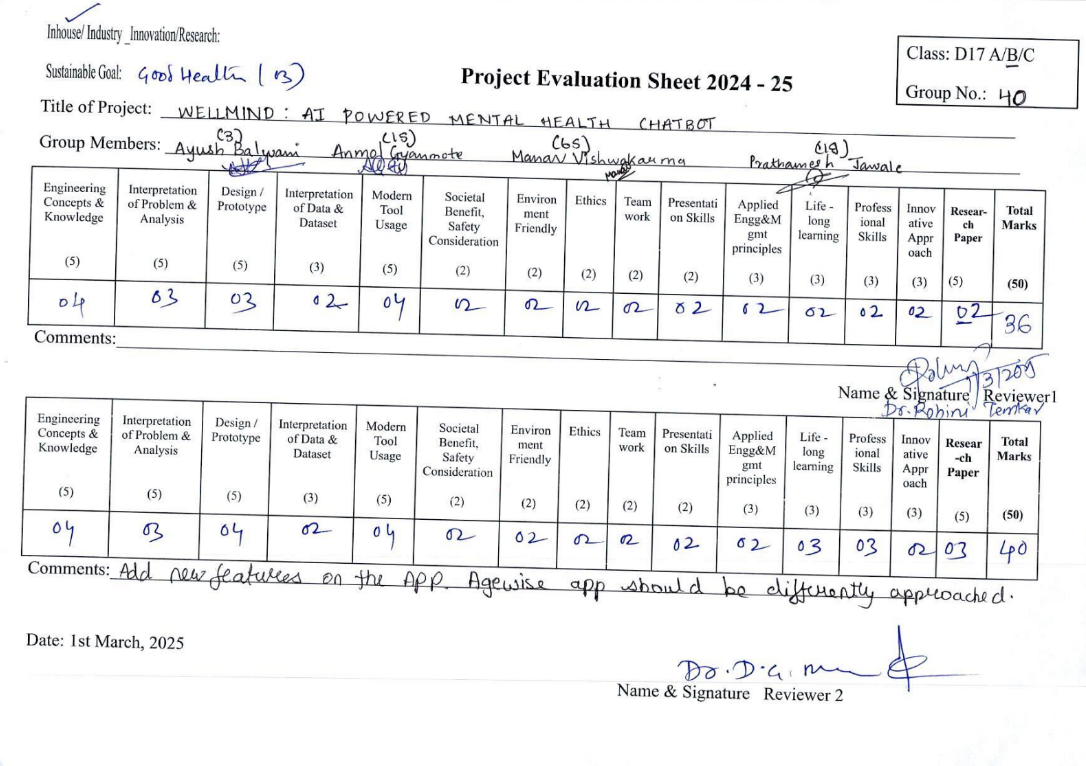 Inhouse/ Industry_Innovation/Research:
Class: D17 A/B/C
Sustainable Goal: Good Health (13)
Project Evaluation Sheet 2024 - 25
Group No.: 40
Title of Project: WELLMIND : AI POWERED MENTAL HEALTH CHATBOT
(3) (15) (65) (18)
Group Members: Ayush Balwani Anmol Gyanmote Manav Vishwakarma Prathamesh Jawale
Engineering Concepts & Knowledge (5) Interpretation of Problem & Analysis (5) Design / Prototype (5) Interpretation of Data & Dataset (3) Modern Tool Usage (5) Societal Benefit, Safety Consideration (2) Environ ment Friendly (2) Ethics (2) Team work (2) Presentati on Skills (2) Applied Engg&M gmt principles (3) Life - long learning (3) Profess ional Skills (3) Innov ative Appr oach (3) Resear- ch Paper (5) Total Marks (50)
04 03 03 02 04 02 02 02 02 02 02 02 02 02 02 36
Comments:
Name & Signature Reviewer1
Dr. Rohini Temkar
Engineering Concepts & Knowledge (5) Interpretation of Problem & Analysis (5) Design / Prototype (5) Interpretation of Data & Dataset (3) Modern Tool Usage (5) Societal Benefit, Safety Consideration (2) Environ ment Friendly (2) Ethics (2) Team work (2) Presentati on Skills (2) Applied Engg&M gmt principles (3) Life - long learning (3) Profess ional Skills (3) Innov ative Appr oach (3) Resear -ch Paper (5) Total Marks (50)
04 03 04 02 04 02 02 02 02 02 02 03 03 02 03 40
Comments: Add new features on the APP. Agewise app should be differently approached.
Date: 1st March, 2025
Dr. D.G.
Name & Signature Reviewer 2